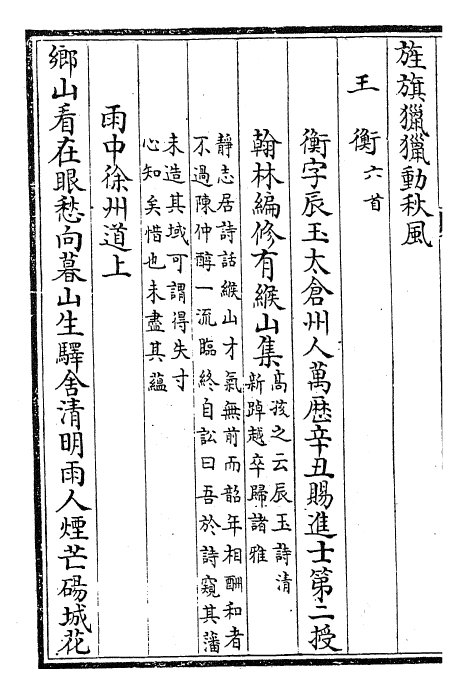 旌旗獵獵動秋風
王衡六首
衡字辰玉太倉州人萬歴辛丑賜進士第二授
翰林編修有緱山集
高孩之云辰玉詩清
新踔越卒歸諸雅
静志居詩話緱山才氣無前而韶年相酬和者
不過陳仲醇一流臨終自訟曰吾於詩窺其藩
未造其域可謂得失寸
心知矣惜也未盡其蘊
雨中徐州道上
鄉山看在眼愁向暮山生驛舍清明雨人煙芒碭城花